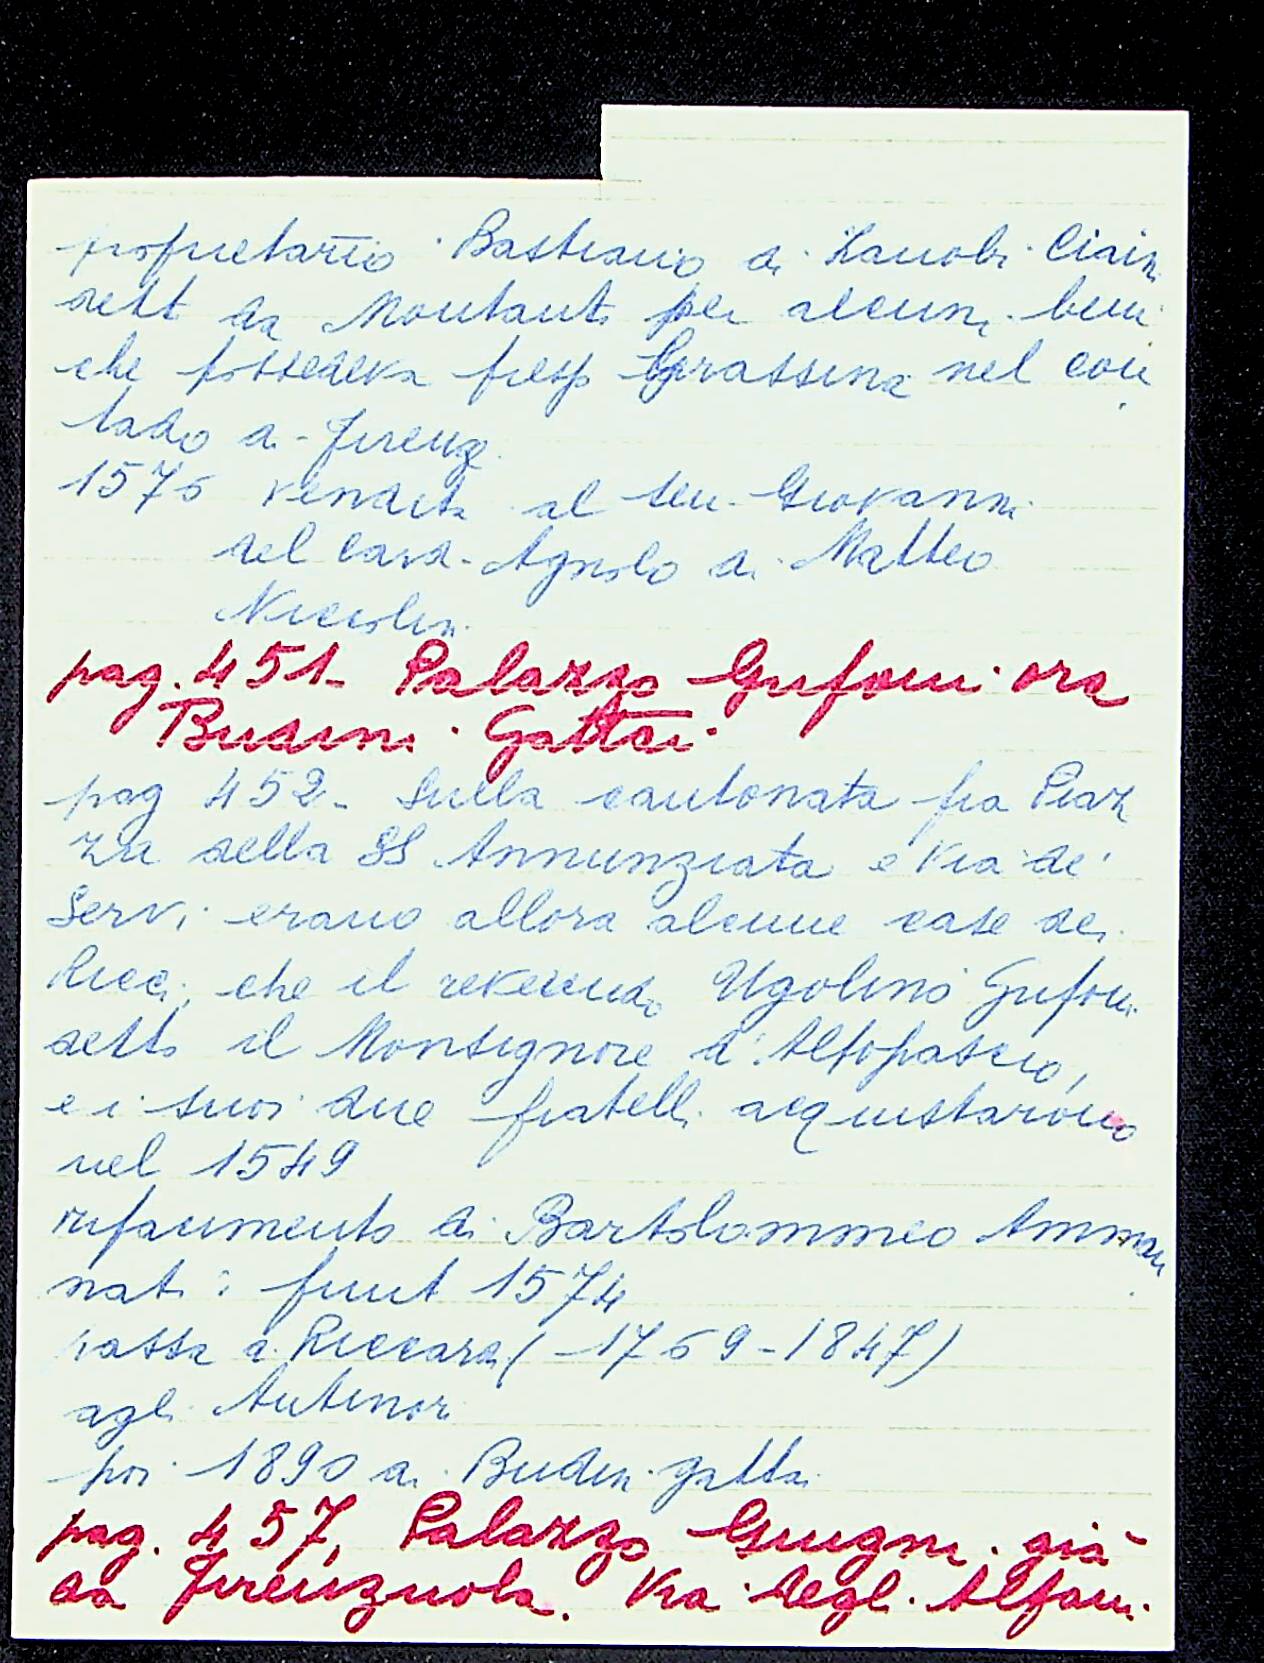 proprietario Bastiano di Zanobi Ciain
detto da Montauto per alcuni beni
che possedeva presso Grassina nel con
tado di Firenz
1576 vendita al sen. Giovanni
del cav. Agnolo di Matteo
Niccolini
pag. 451 - Palazzo Grifoni ora
Budini Gattai.
pag 452 - Sulla cantonata fra Piaz
za della SS Annunziata e Via de'
Servi erano allora alcune case dei
Ricci, che il reverendo Ugolino Grifoni
detto il Monsignore d'Altopascio,
e i suoi due fratelli acquistarono
nel 1549
rifacimento di Bartolommeo Amman
nati : finit 1574
passa a Riccardi (-1769-1847)
agli Antinori
poi 1890 ai Budini gattai
pag. 457, Palazzo Giugni già
da Firenzuola. Via degli Alfani.